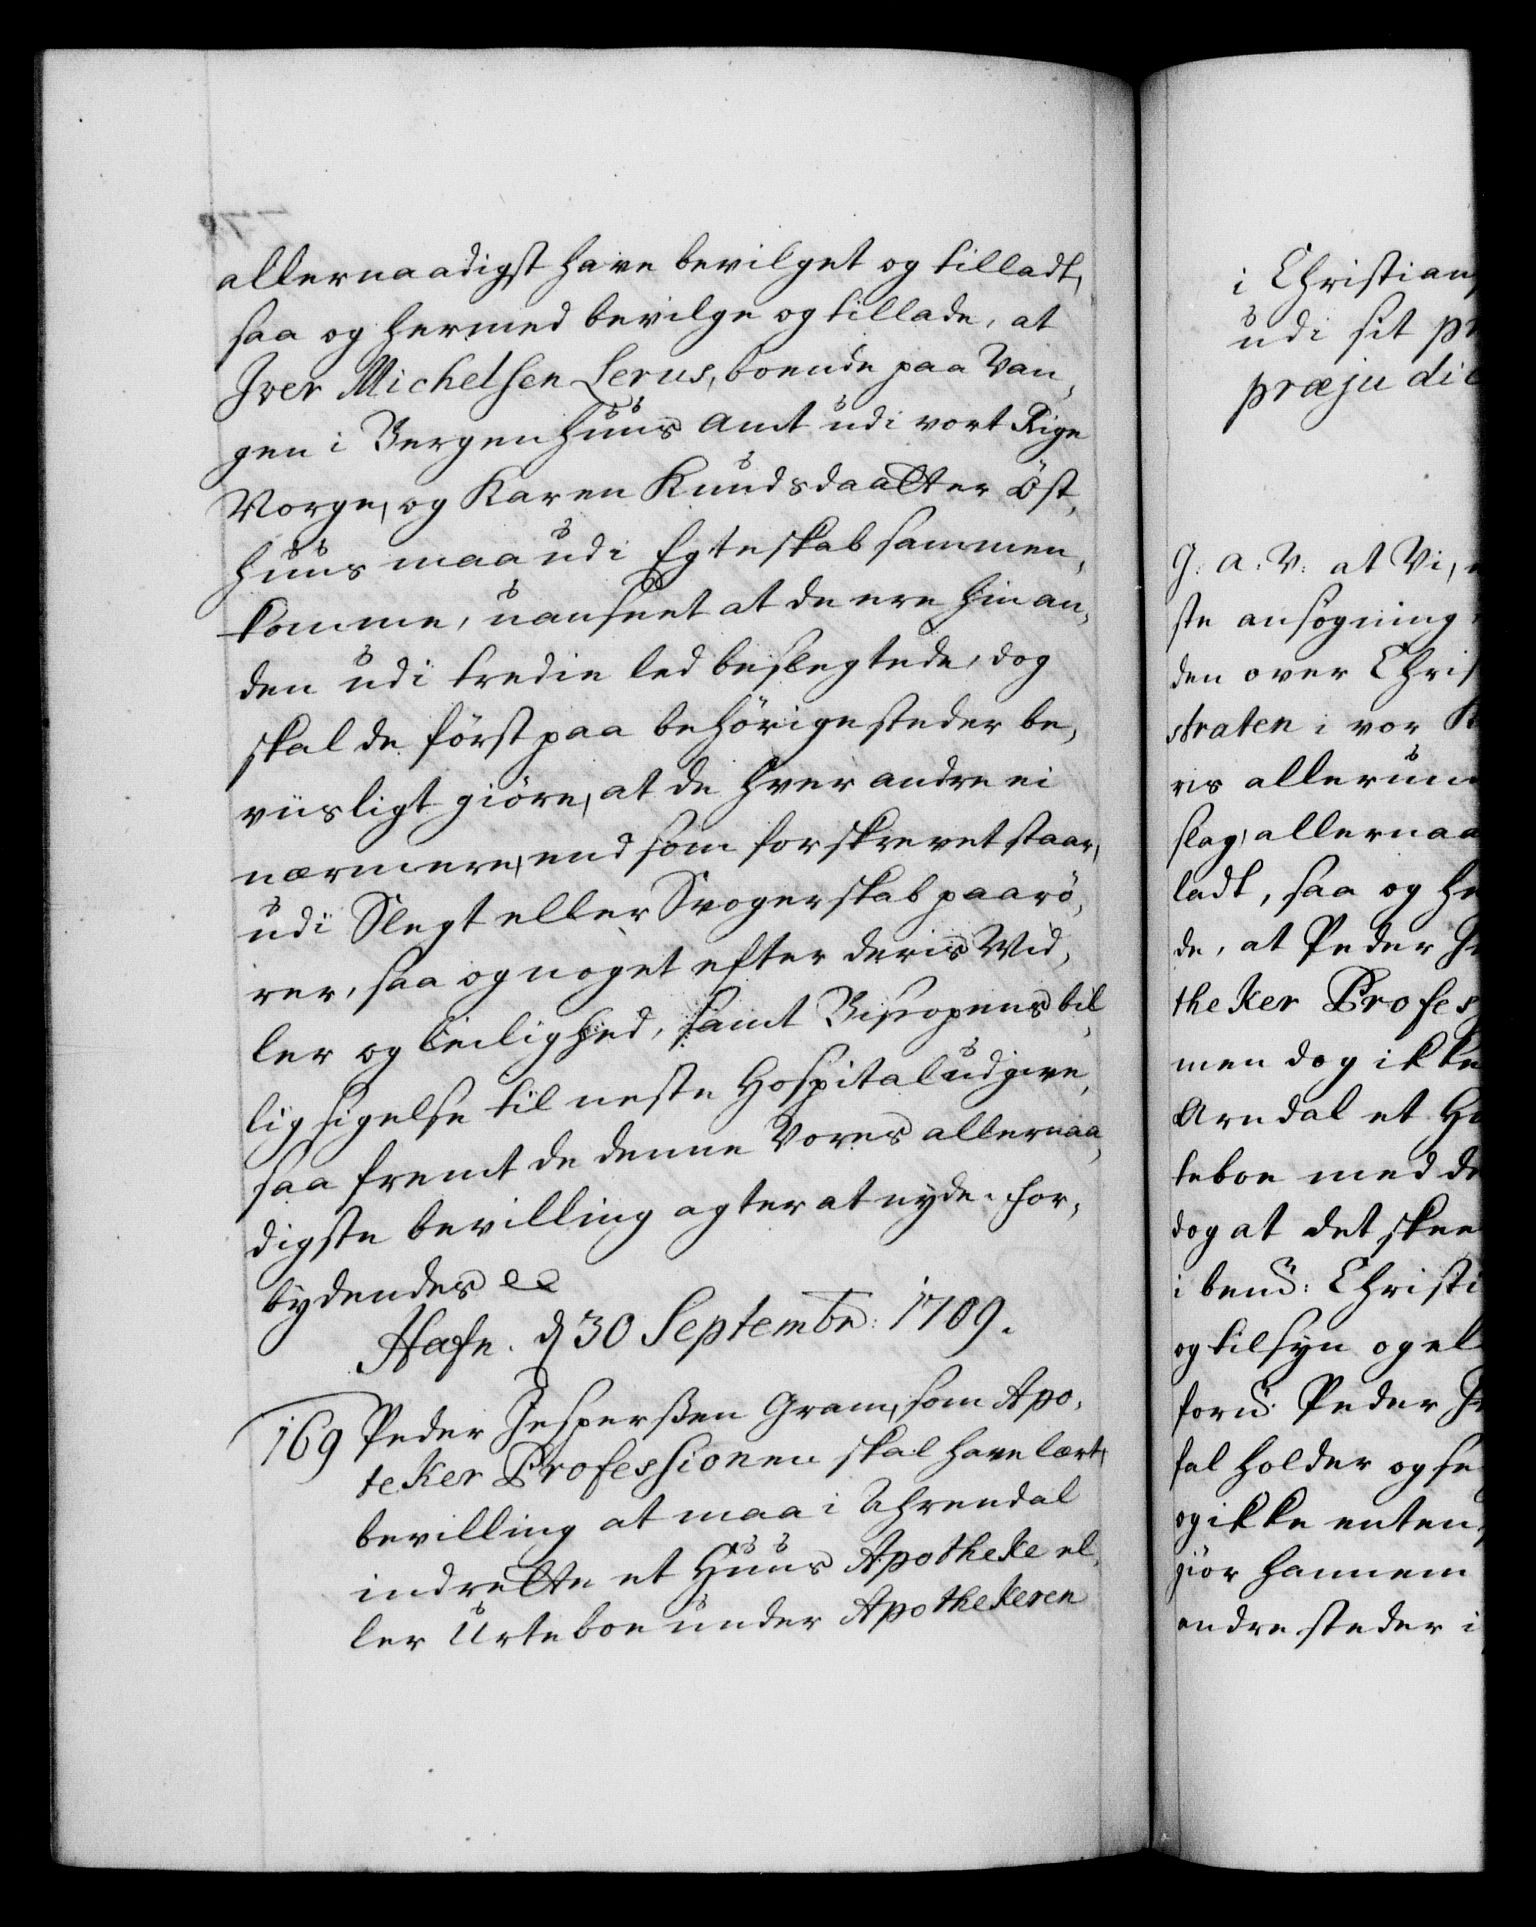 allernaadigst have bevilget og tilladt,
saa og hermed bevilge og tillade, at
Iver Michelsen Lerus, boende paa Van,
gen i Bergenhuus Amt udi vort Rige
Norge, og Karen Knudsdaatter Öst,
huus maa udi Egteskab sammen,
komme, uanseet at de ere hinan,
den udi tredie led beslegtede, dog
skal de först paa behörige steder be,
viisligt giöre, at de hver andre ei
nærmere, end som forskrevet staar,
udi Slegt eller Svogerskab paarö,
rer, saa og noget efter deris Mid,
ler og leilighed, samt Bispens bil
ligsigelse til neste Hospital udgive,
saa fremt de denne Vores allernaa,
digste bevilling agter at nyde. For,
bydendes
Hafn. d 30 Septembr: 1709.
169 Peder Jesperssen Gram, som Apo,
teker Professionen skal have lært,
bevilling at maa i Ahrendal
indrette et Huus Apotheke el,
ler Urteboe under Apothekeren
i Christians
udi sit pr
præjudic
G. A. V: at Vi,
ste ansögning
den over Chris
straten i vor K
ris allerun
slag, allernaa
ladt, saa og he
de, at Peder J
theker Profes
men dog ikke
Arndal et Hu
teboe med de
dog at det skee
i bem: Christi
og tilsyn og el
forn Peder J
sal holder og se
og ikke enten
giör hannem
andre steder i